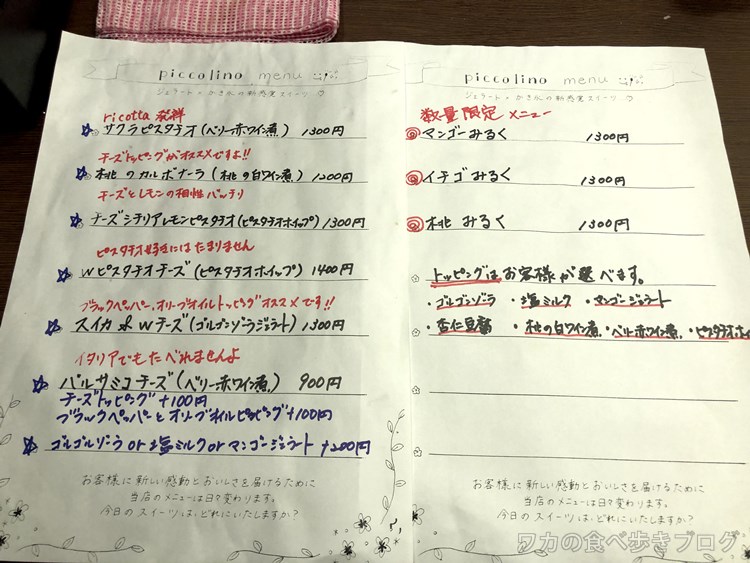 piccolino menu
ジェラート×かき氷の新感覚スイーツ
ricotta 発祥
サクラピスタチオ(ベリー赤ワイン煮) 1300円
チーズトッピングがオススメですよ!!
桃のカルボナーラ(桃の白ワイン煮) 1200円
チーズとレモンの相性バッチリ
チーズシチリアレモンピスタチオ(ピスタチオホイップ) 1300円
ピスタチオ好きにはたまりません
Wピスタチオチーズ(ピスタチオホイップ) 1400円
ブラックペッパー、オリーブオイルトッピングオススメです!!
スイカ氷Wチーズ(ゴルゴンゾーラジェラート) 1300円
イタリアでもたべれませんよ
バルサミコチーズ(ベリー赤ワイン煮) 900円
チーズトッピング+100円
ブラックペッパーとオリーブオイルトッピング+100円
ゴルゴルゾーラor塩ミルクorマンゴージェラート +200円
お客様に新しい感動とおいしさを届けるために
当店のメニューは日々変わります。
今日のスイーツは、どれにいたしますか?
piccolino menu
ジェラート×かき氷の新感覚スイーツ
数量限定メニュー
マンゴーみるく 1300円
イチゴみるく 1300円
桃みるく 1300円
トッピングはお客様が選べます。
・ゴルゴンゾーラ ・塩ミルク ・マンゴージェラート
・杏仁豆腐 ・桃の白ワイン煮 ・ベリー赤ワイン煮 ・ピスタチオホイ
お客様に新しい感動とおいしさを届けるために
当店のメニューは日々変わります。
今日のスイーツは、どれにいたしますか?
ワカの食べ歩きブログ